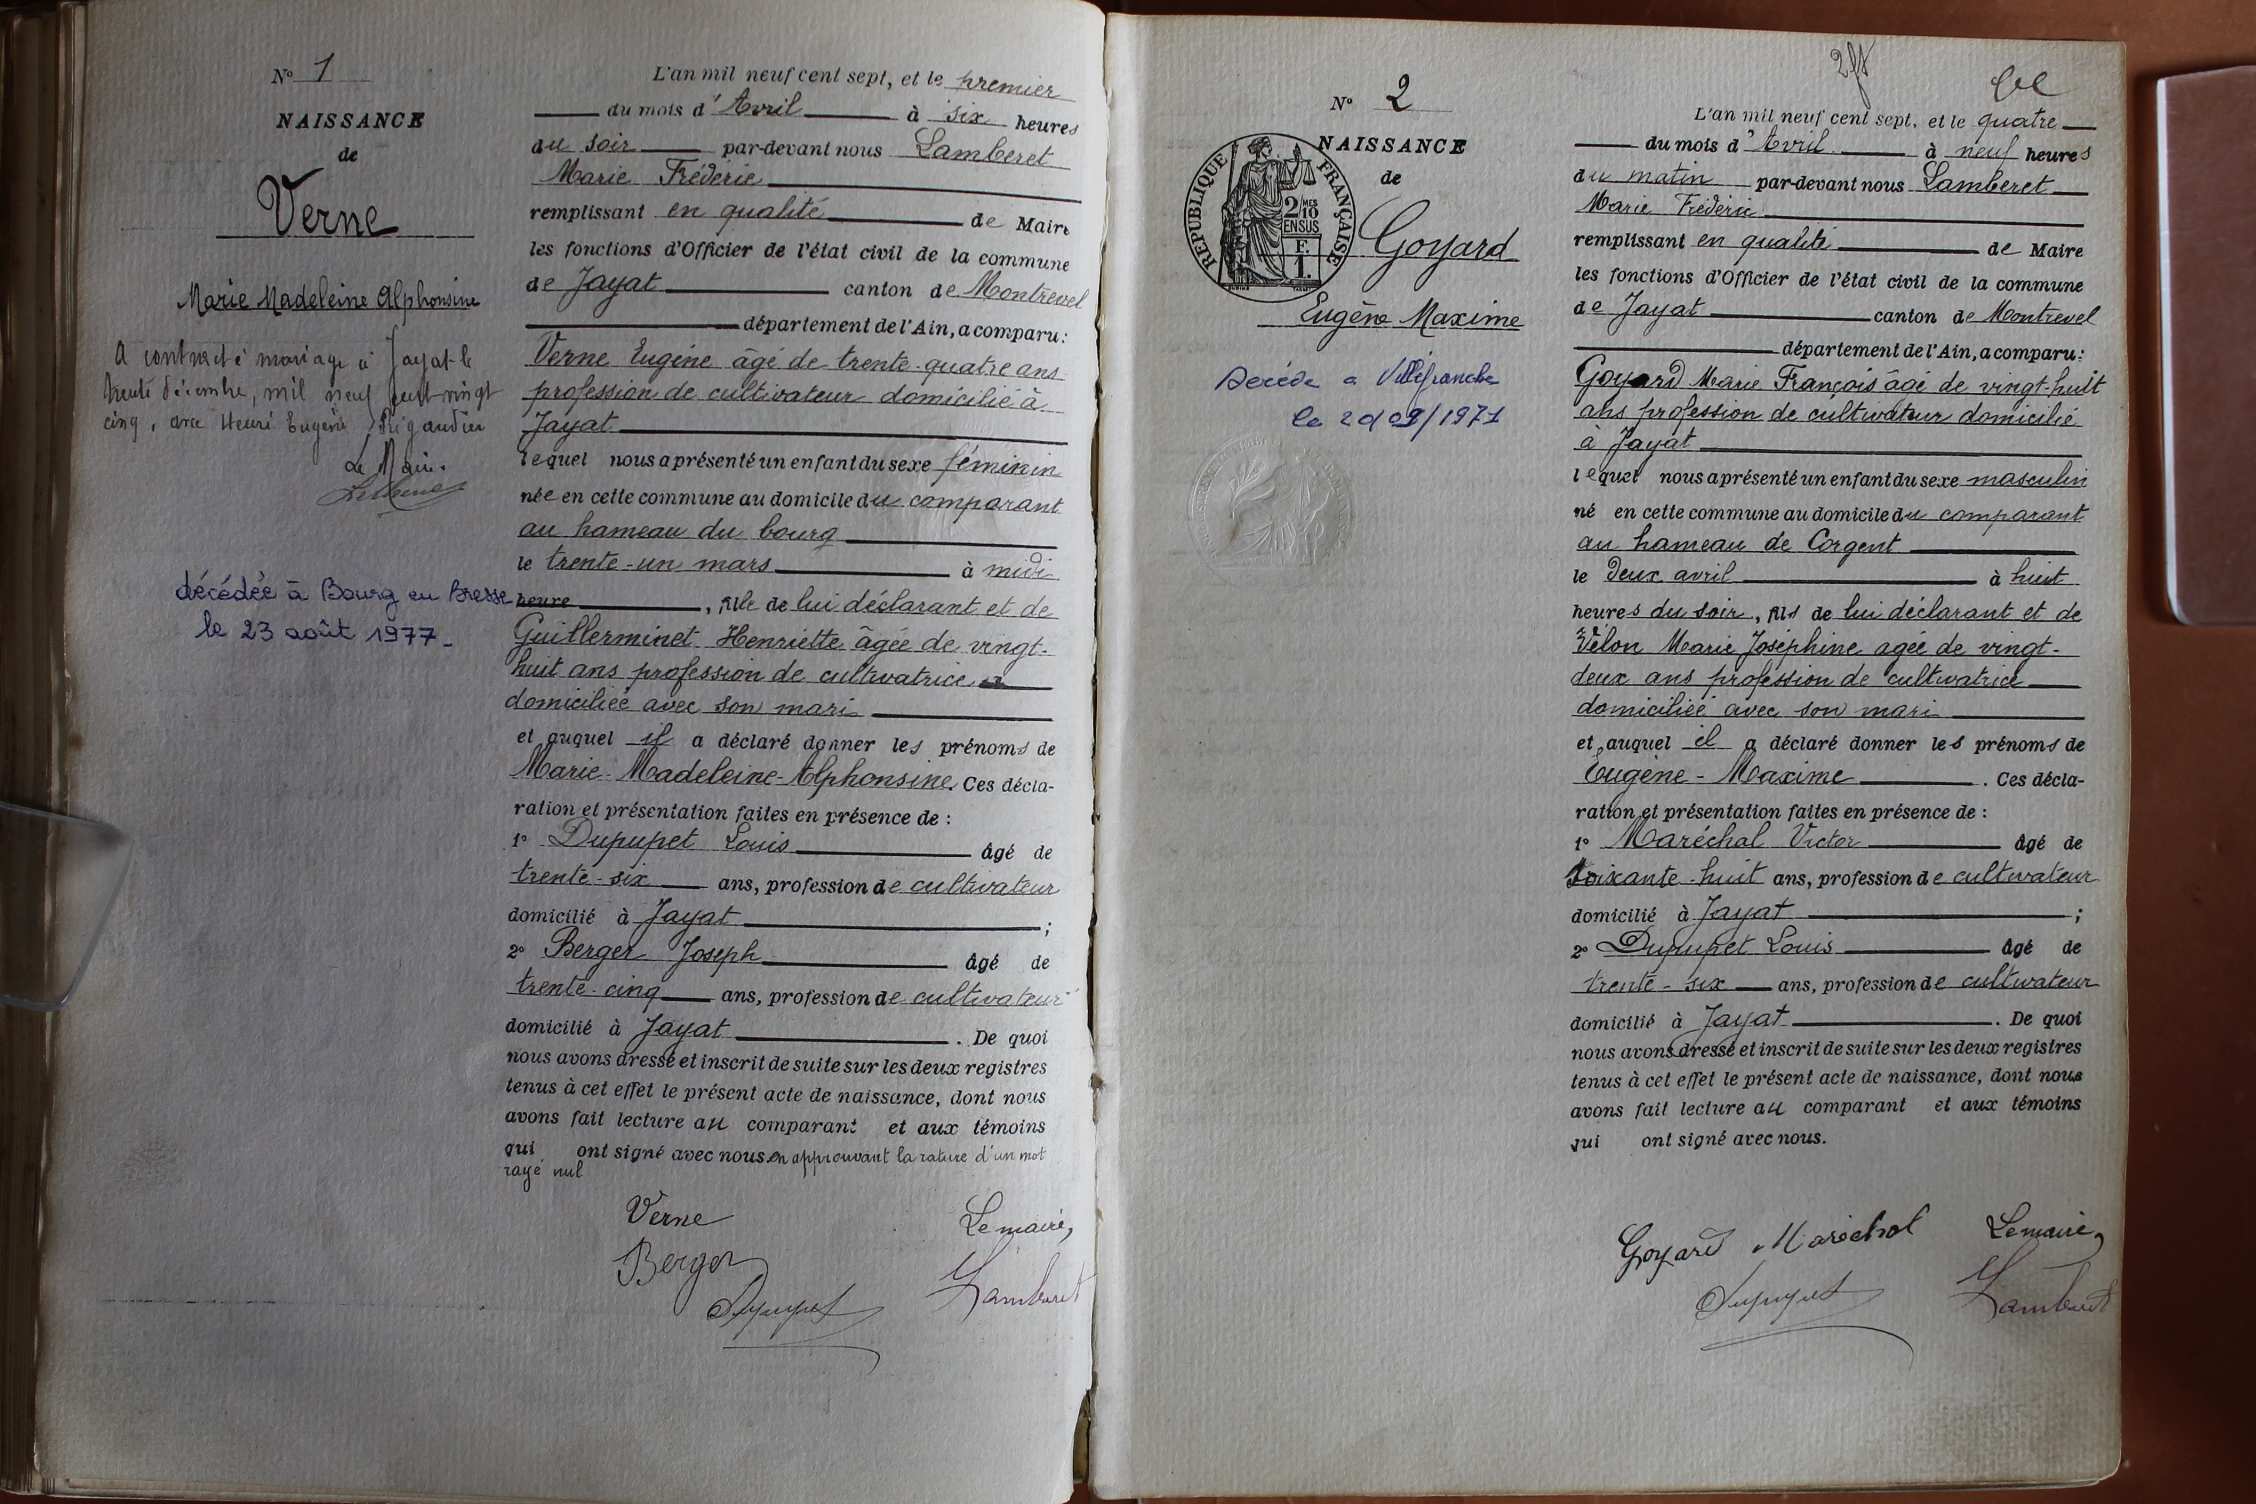 N° 1
NAISSANCE
de
Verne
Marie Madeleine Alphonsine
A contracté mariage à Jayat le
trente décembre, mil neuf cent vingt
cinq, avec Henri Eugène Rigaudier
Le Maire.
décédée à Bourg en Bresse
le 23 août 1977_
L'an mil neuf cent sept, et le premier
du mois d'Avril à six heures
du soir par-devant nous Lamberet
Marie Frédéric
remplissant en qualité de Maire
les fonctions d'Officier de l'état civil de la commune
de Jayat canton de Montrevel
département de l'Ain, a comparu:
Verne Eugène âgé de trente-quatre ans
profession de cultivateur domicilié à
Jayat
lequel nous a présenté un enfant du sexe féminin
née en cette commune au domicile du comparant
au hameau du bourg
le trente-un mars à midi
heure, fille de lui déclarant et de
Guillerminet Henriette âgée de vingt-
huit ans profession de cultivatrice
domiciliée avec son mari
et auquel il a déclaré donner les prénoms de
Marie-Madeleine-Alphonsine. Ces décla-
ration et présentation faites en présence de :
1° Dupupet Louis âgé de
trente-six ans, profession de cultivateur
domicilié à Jayat ;
2° Berger Joseph âgé de
trente-cinq ans, profession de cultivateur
domicilié à Jayat . De quoi
nous avons dressé et inscrit de suite sur les deux registres
tenus à cet effet le présent acte de naissance, dont nous
avons fait lecture au comparant et aux témoins
qui ont signé avec nous en approuvant la rature d'un mot
rayé nul
Verne Le maire,
Berger Lamberet
Dupupet
2
N° 2
NAISSANCE
de
REPUBLIQUE FRANÇAISE
2 MES
10
EN SUS
F.
1.
Goyard
Eugène Maxime
Décédé a Villefranche
le 20/09/1971
L'an mil neuf cent sept, et le quatre
du mois d'Avril à neuf heures
du matin par-devant nous Lamberet
Marie Frédéric
remplissant en qualité de Maire
les fonctions d'Officier de l'état civil de la commune
de Jayat canton de Montrevel
département de l'Ain, a comparu:
Goyard Marie François âgé de vingt-huit
ans profession de cultivateur domicilié
à Jayat
lequel nous a présenté un enfant du sexe masculin
né en cette commune au domicile du comparant
au hameau de Corgent
le deux avril à huit
heures du soir, fils de lui déclarant et de
Vélon Marie Joséphine agée de vingt-
deux ans profession de cultivatrice
domiciliée avec son mari
et auquel il a déclaré donner les prénoms de
Eugène-Maxime . Ces décla-
ration et présentation faites en présence de :
1° Maréchal Victor âgé de
soixante-huit ans, profession de cultivateur
domicilié à Jayat ;
2° Dupupet Louis âgé de
trente-six ans, profession de cultivateur
domicilié à Jayat . De quoi
nous avons dressé et inscrit de suite sur les deux registres
tenus à cet effet le présent acte de naissance, dont nous
avons fait lecture au comparant et aux témoins
qui ont signé avec nous.
Goyard Maréchal Le maire,
Dupupet Lamberet